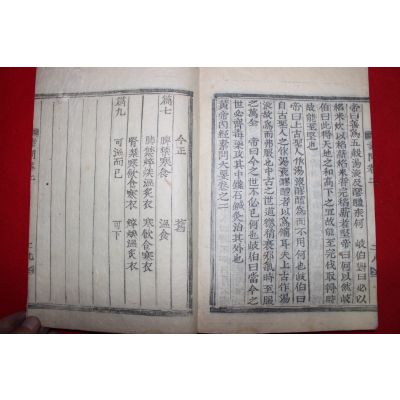 素問卷二 二八
帝曰善爲五穀湯液及醪醴柰何 岐伯對曰必以
稻米炊以稻薪稻米者完稻薪者堅帝曰何以然岐
伯曰此得天地之和高下之宜故能至完伐取得時
故能至堅也
帝曰上古聖人作湯液醪醴爲而不用何也岐伯曰
自古聖人之作湯液醪醴者以爲備耳夫上古作湯
液故爲而弗服也中古之世道德稍衰邪氣時至服
之萬全 帝曰今之世不必已何也岐伯曰當今之
世必齊毒藥攻其中鑱石鍼灸治其外也
黃帝內經素問大要卷之二
今正 舊
篇七 脾禁寒食 溫食
肺禁焠㶼溫炙衣 寒飮食寒衣
腎禁寒飮食寒衣 焠㶼溫炙衣
篇九 可溫而已 可下
素問卷二 二九